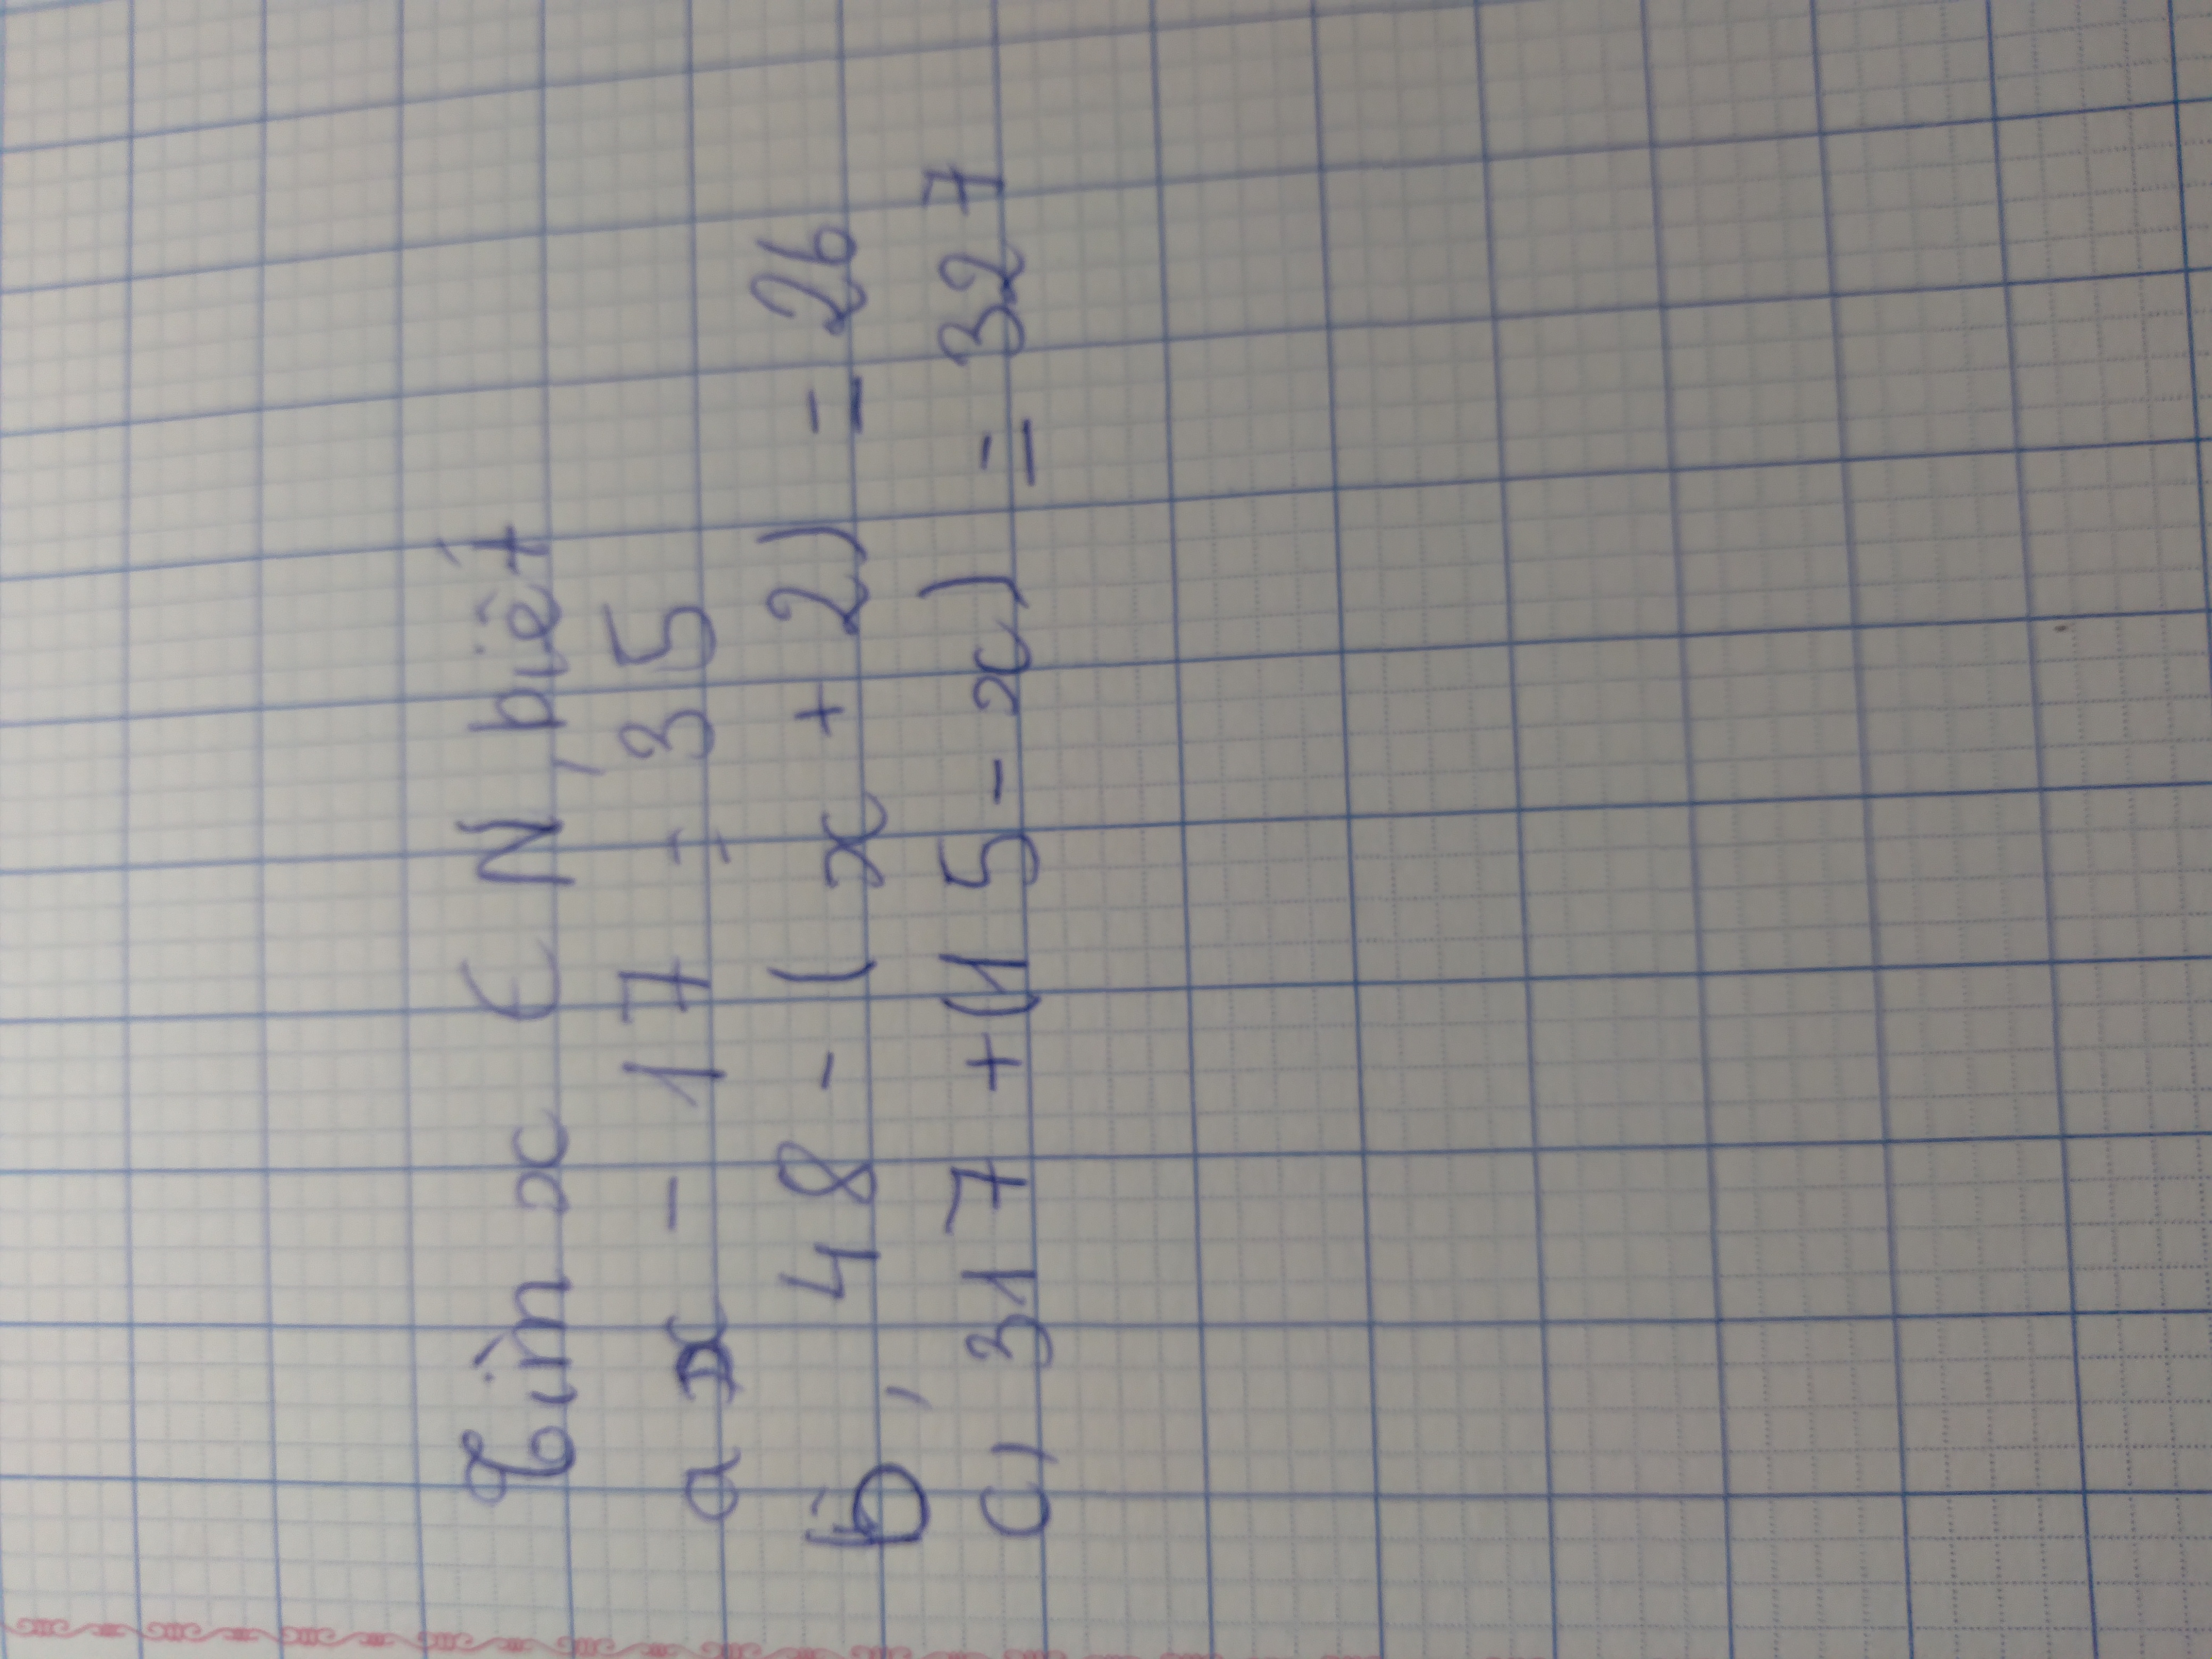 Tìm x ∈ N, biết
a x - 17 = 35
b, 48 - (x + 2) = 26
c, 317 + (15 - x) = 327